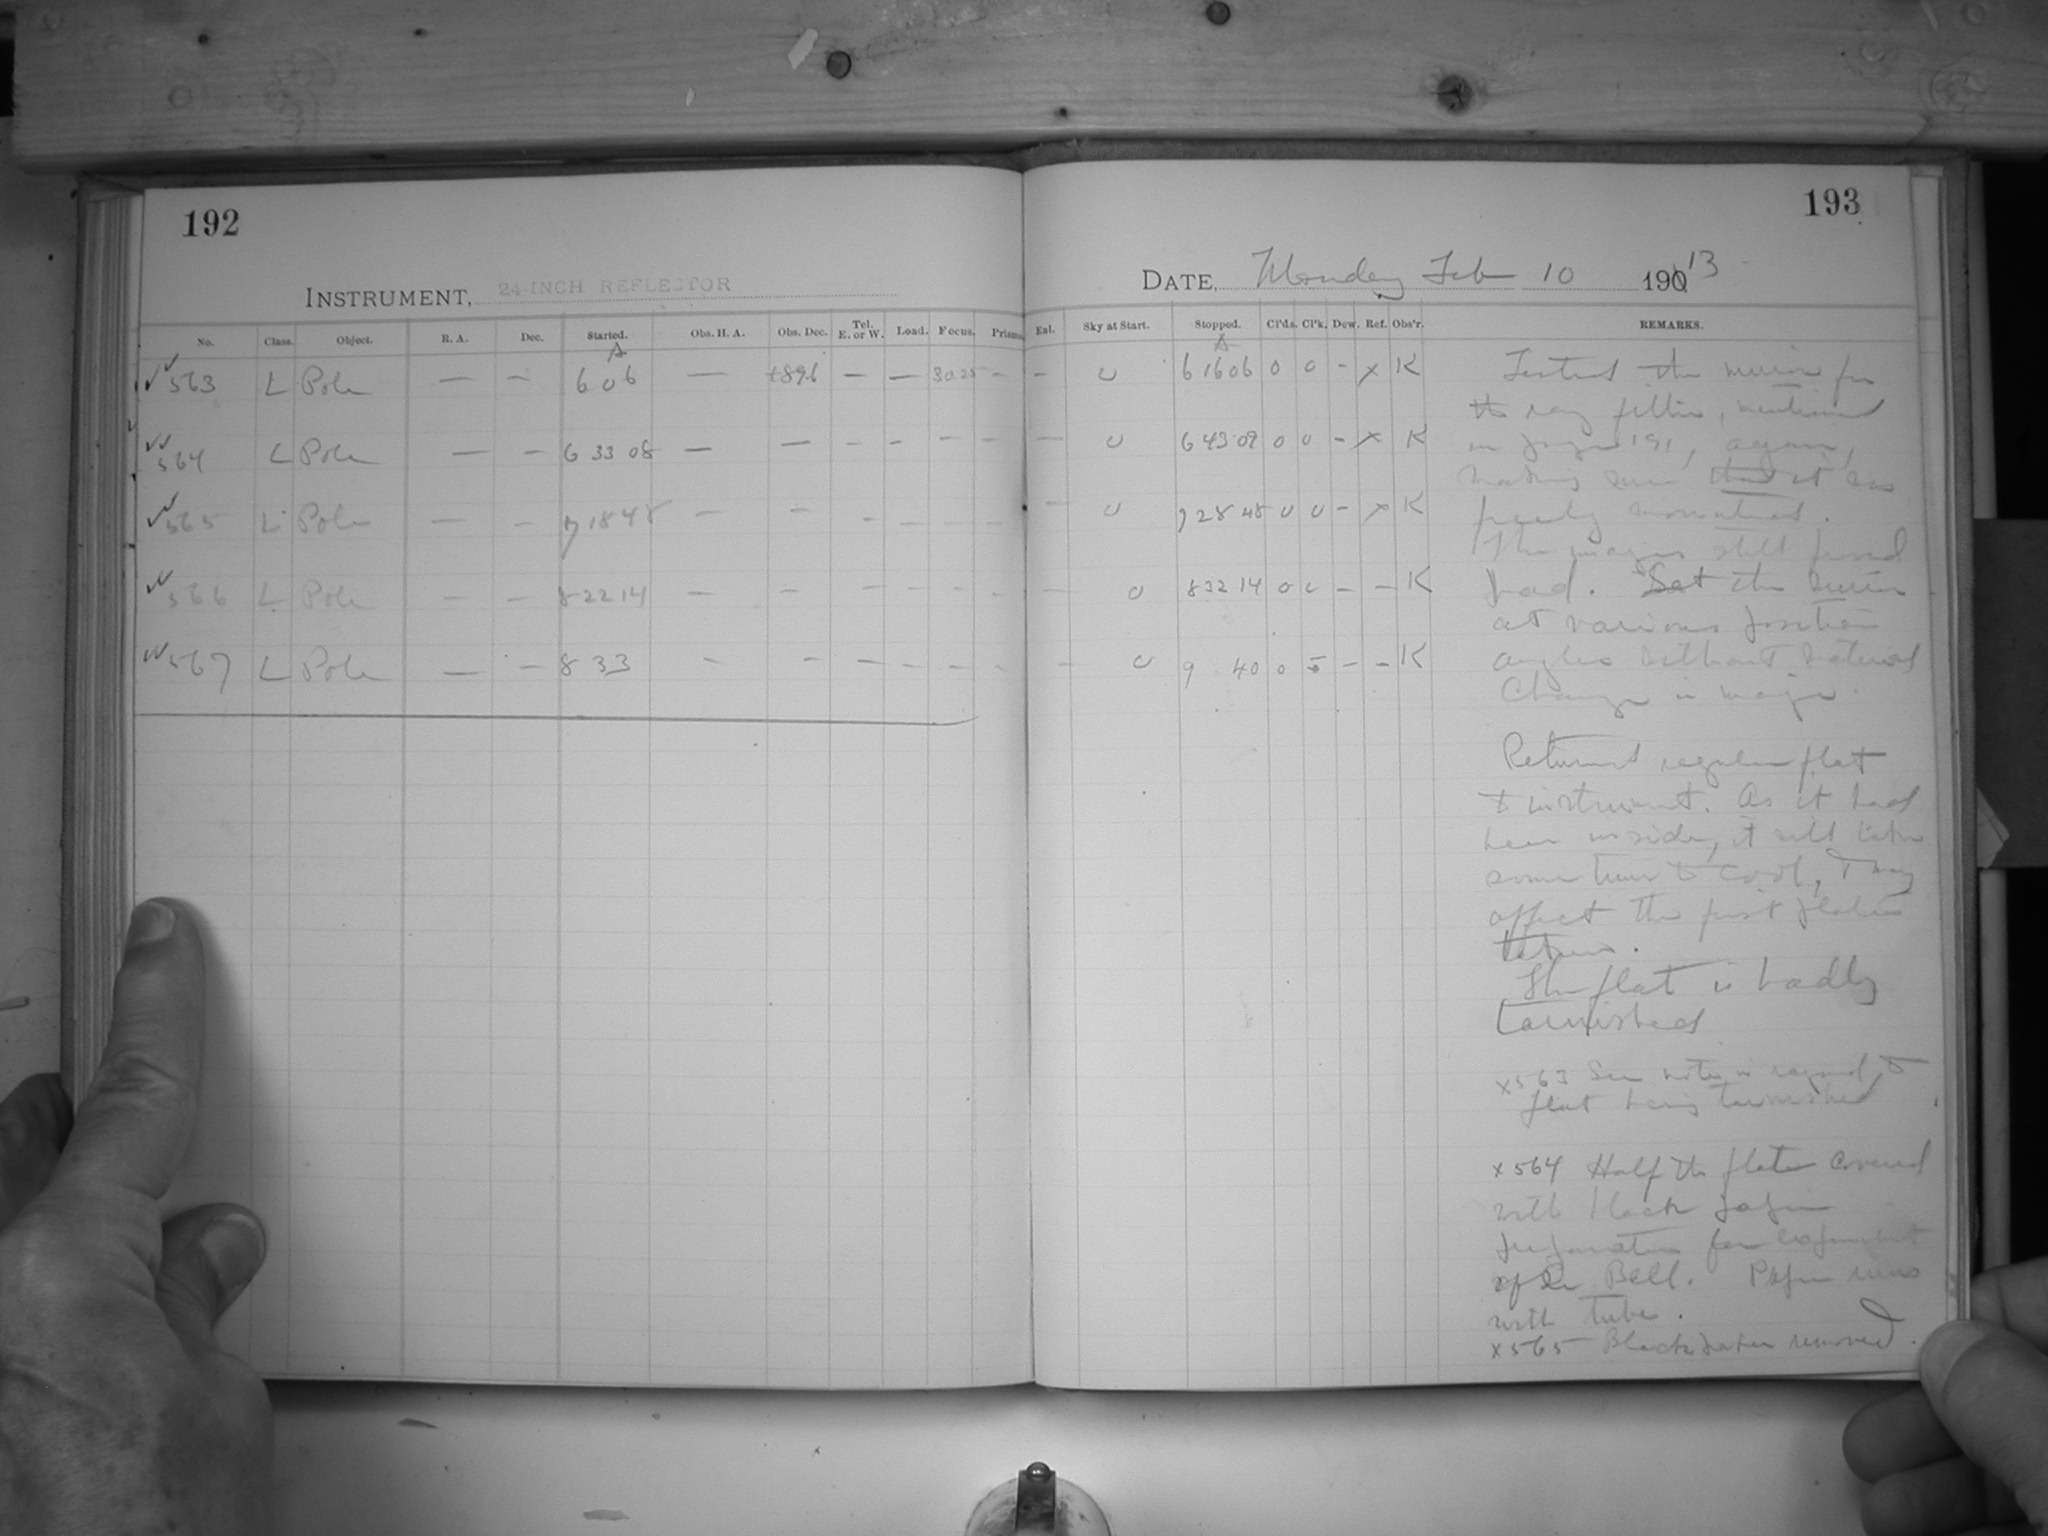 192
INSTRUMENT, 24-INCH REFLECTOR
No. Class. Object. R. A. Dec. Started. Obs. H. A. Obs. Dec. Tel. E. or W. Load. Focus. Prisms.
A
563 L Pole — — 6 06 — +89.6 — — 30.25 —
564 L Pole — — 6 33 08 — — — — — —
565 L Pole — — 7 18 48 — — — — — —
566 L Pole — — 8 22 14 — — — — — —
567 L Pole — — 8 33 — — — — — —
193
DATE, Monday Feb 10 1913
Ext. Sky at Start. Stopped. Cl'ds. Cl'k. Dew. Ref. Obs'r. REMARKS.
A
— 0 6 16 06 0 0 – x K
— 0 6 43 08 0 0 – x K
— 0 7 28 48 0 0 – x K
— 0 8 32 14 0 0 – – K
— 0 9 40 0 – – K
Tested the mirror for
the ray filter, mentioned
in page 191, again,
making sure that it was
freely mounted.
The images still proved
bad. Set the mirror
at various position
angles without material
change in image.
Returned regular flat
to instrument. As it had
been inside, it will take
some time to cool, & may
affect the first plates
taken.
The flat is badly
tarnished
x563 See note in regard to
flat being tarnished
x564 Half the plate covered
with black paper
preparation for experiment
of Dr Bell. Paper runs
with tube.
x565 Black paper removed.